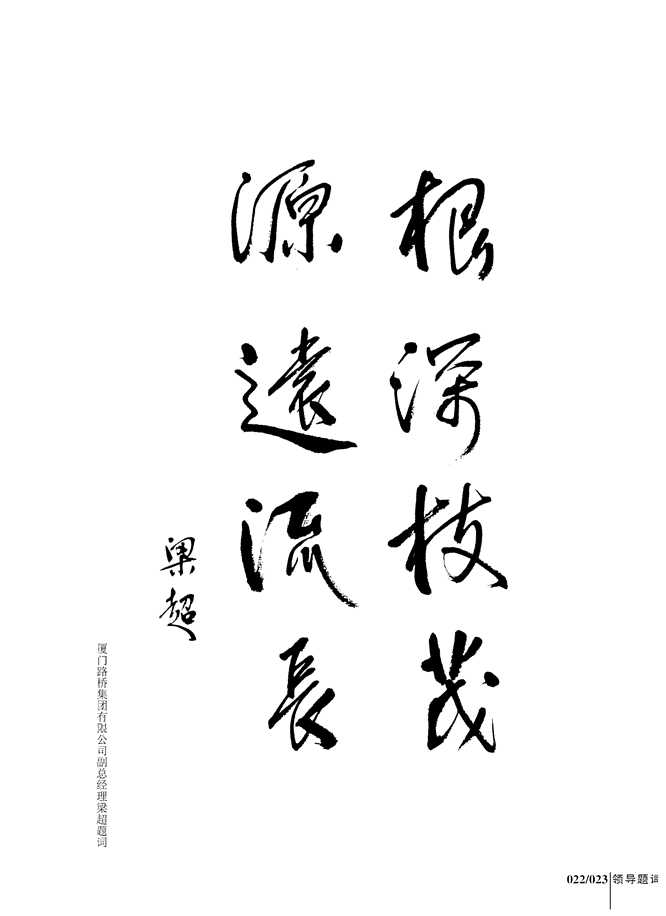 根深枝茂
源遠流長
梁超
厦门路桥集团有限公司副总经理梁超题词
022/023 领导题